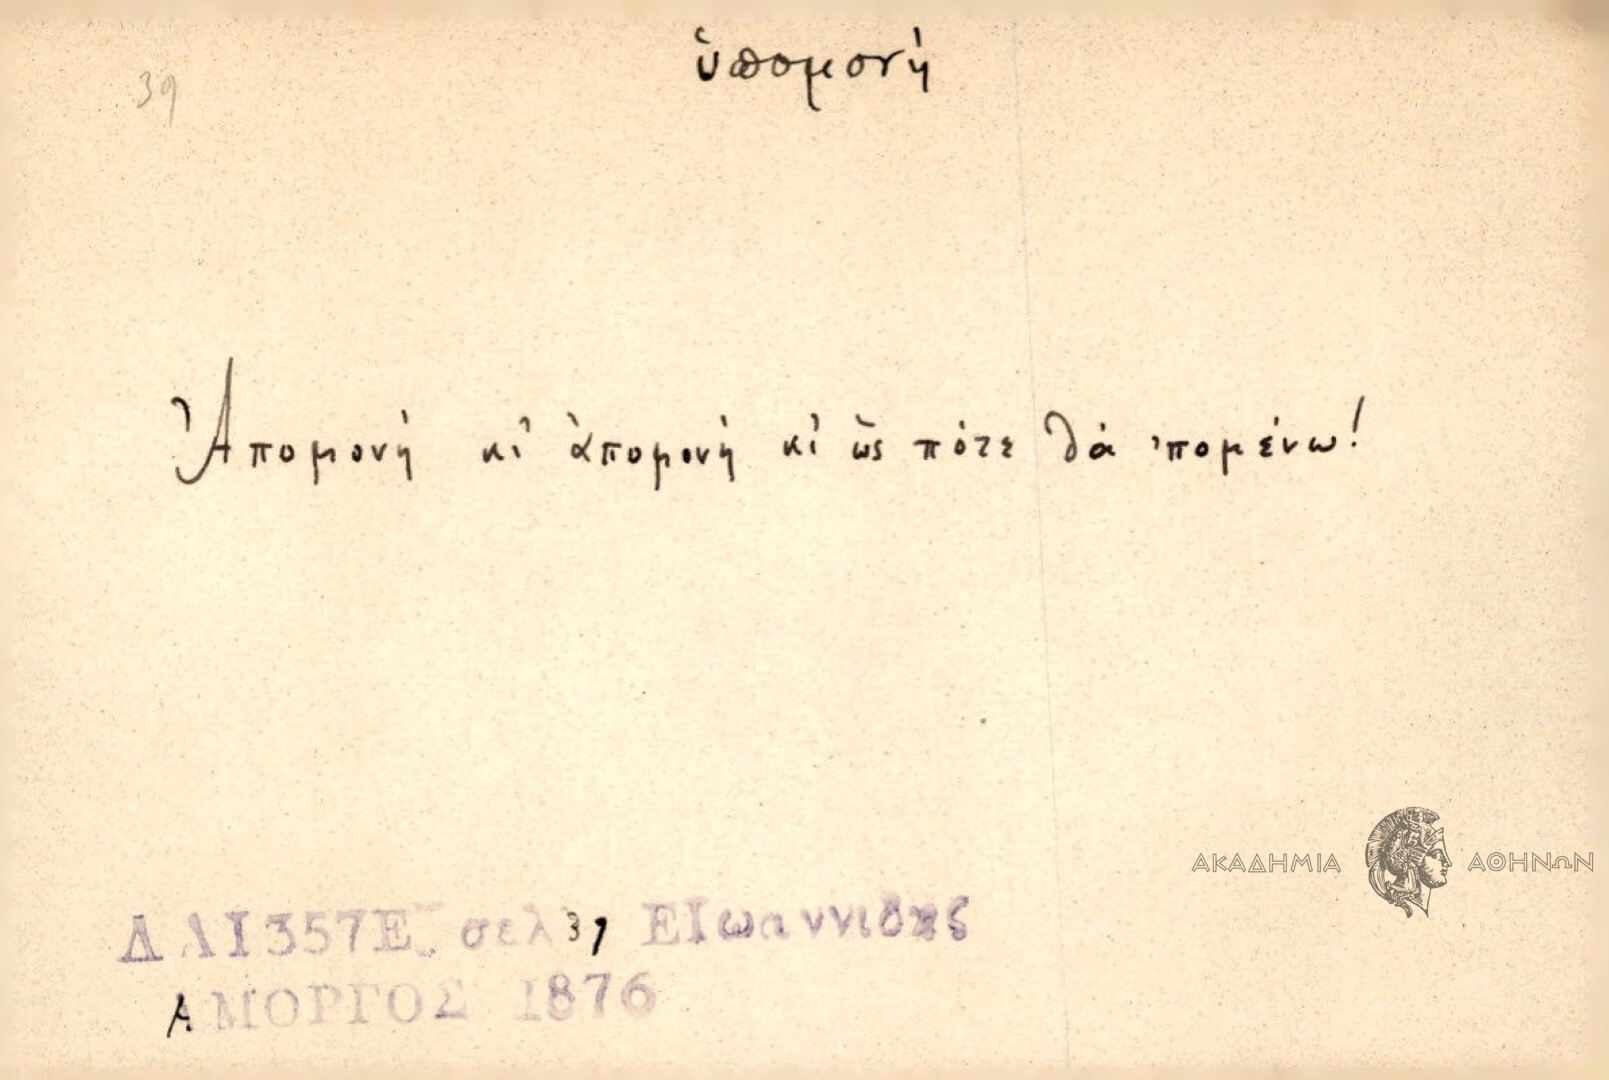 39
ὑπομονή
Ἀπομονή κι' ἀπομονή κι' ὣς πότε θά 'πομένω!
ΑΚΑΔΗΜΙΑ ΑΘΗΝΩΝ
1357Ε σελ 39 ΕΙωαννιδης
ΑΜΟΡΓΟΣ 1876